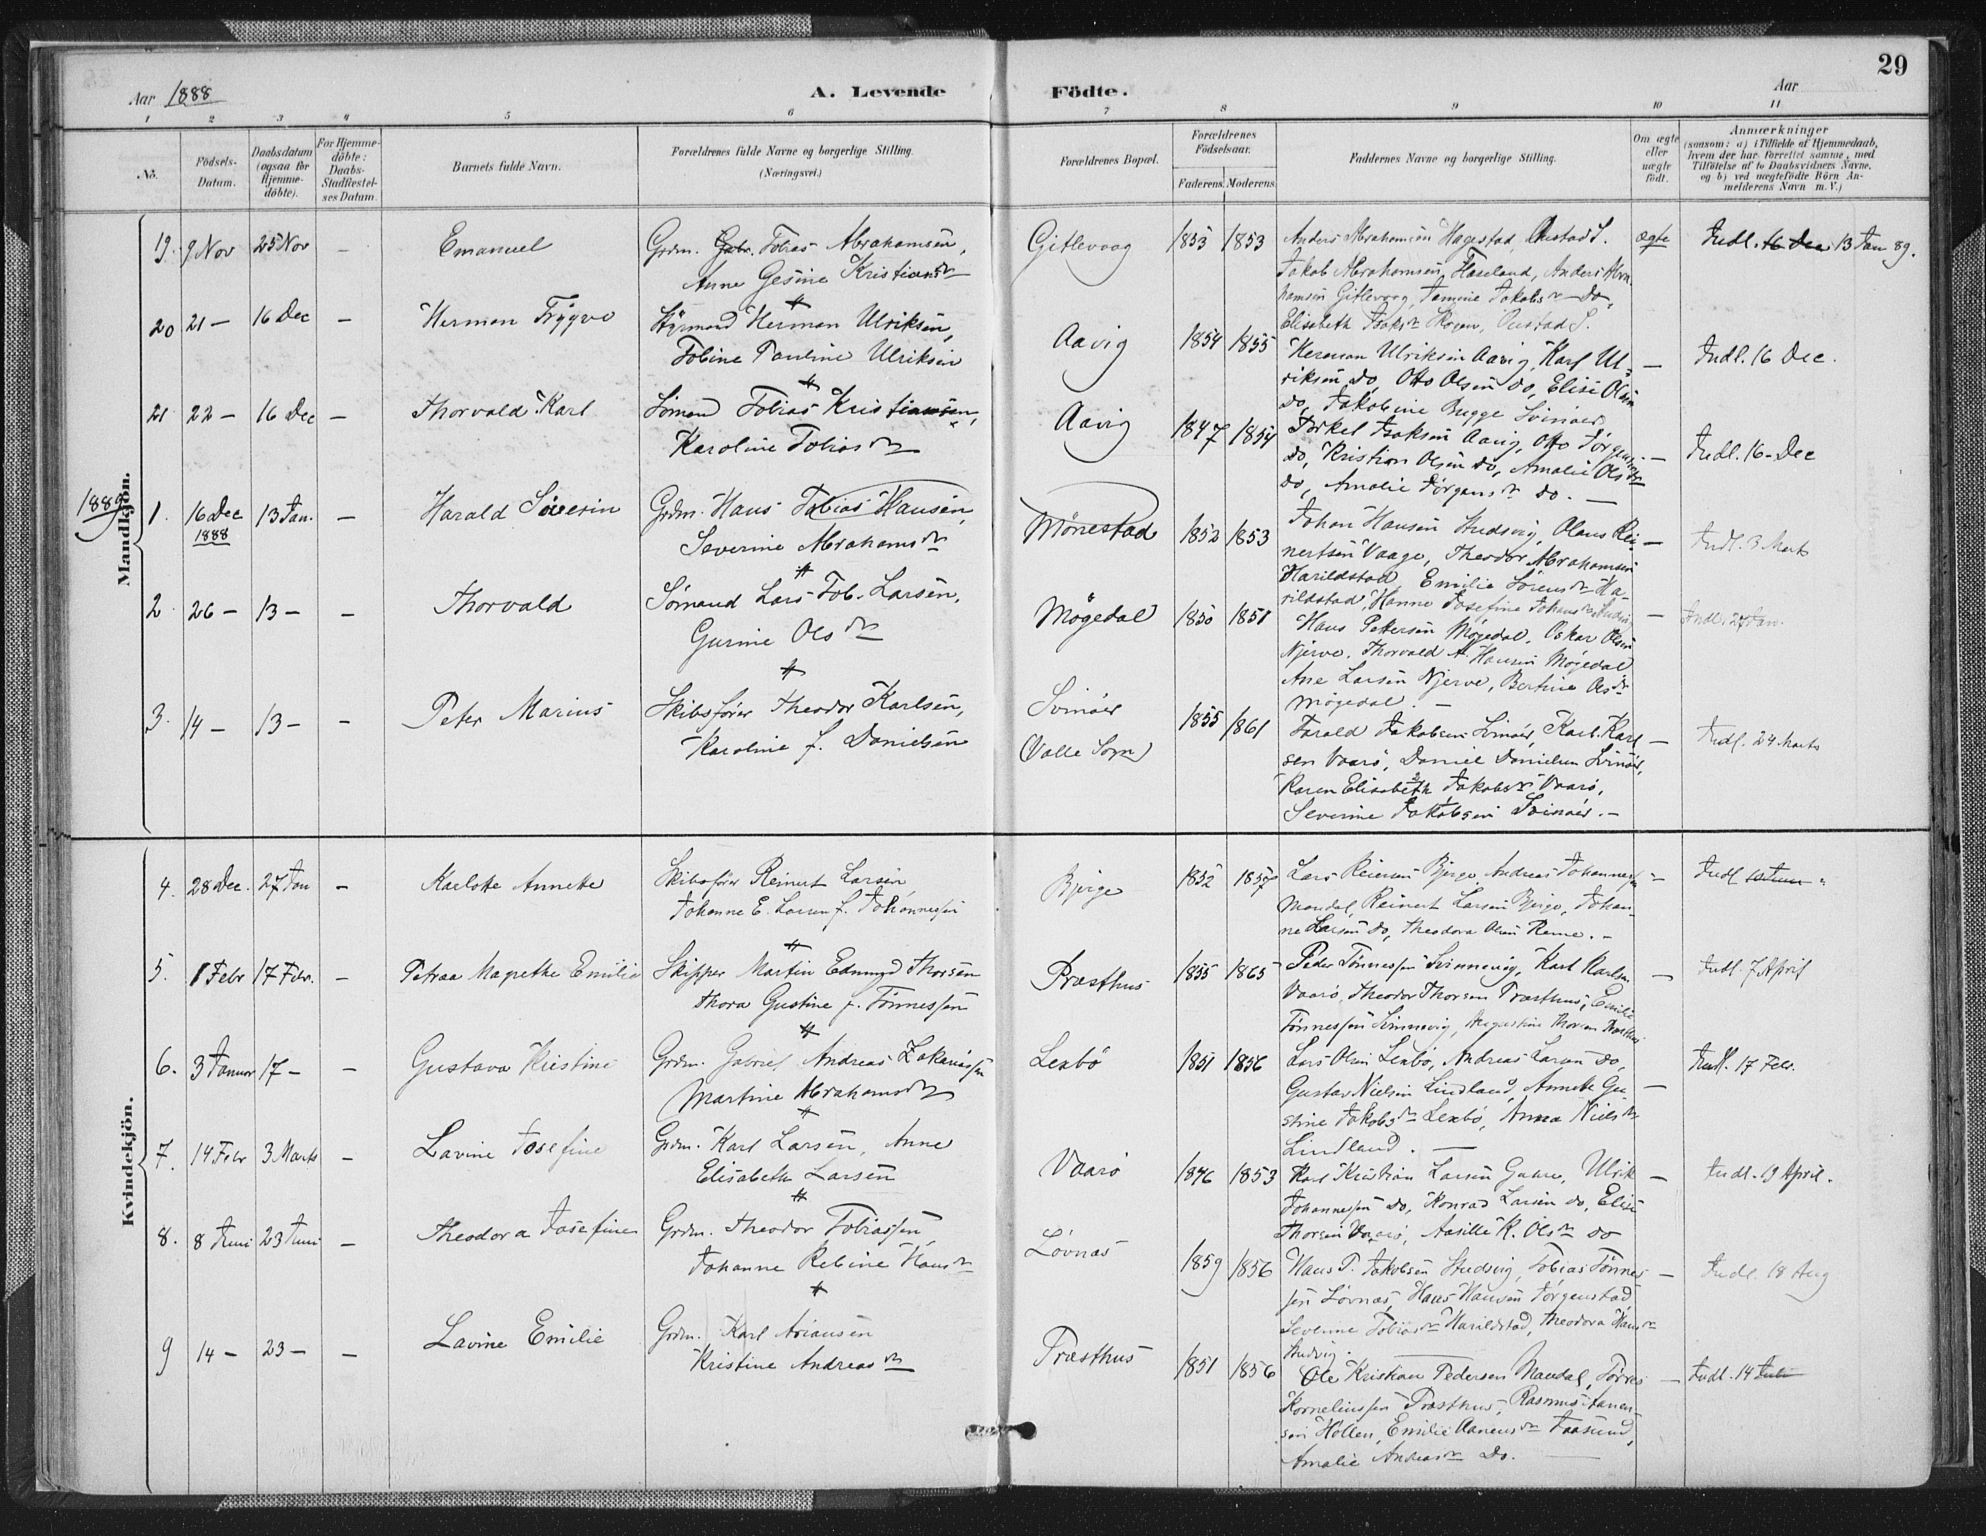 29
Aar 1888
A. Levende Födte.
Aar
1 2 3 4 5 6 7 8 9 10 11
No.
Födsels-Datum.
Daabsdatum (ogsaa for Hjemme-döbte).
For Hjemme-döbte: Daabs-Stadfæstel-ses Datum.
Barnets fulde Navn.
Forældrenes fulde Navne og borgerlige Stilling. (Næringsvei.)
Forældrenes Bopæl.
Forældrenes Födselsaar.
Faderens. Moderens.
Faddernes Navne og borgerlige Stilling.
Om ægte eller uægte födt.
Anmærkninger
(saasom: a) i Tilfælde af Hjemmedaab, hvem der har forrettet samme, med Tilföielse af to Daabsvidners Navne, og b) ved uægtefödte Börn An-melderens Navn m. V.)
Mandkjön.
19. 9 Nov 25 Nov - Emanuel
Grdm. Gabr. Tobias Abrahamsen,
Anne Gesine Kristiansdr
Gitlevaag 1853 1853
Anders Abrahamsen Hagestad Oustad S.
Jakob Abrahamsen, Haseland, Anders Abra-
hamsen Gitlevaag, Tamine Jakobsdr do,
Elisabeth Isaksdr Skogen, Oustad S.
ægte Indl. 16 Dec 13 Jan 89.
20 21 - 16 Dec - Herman Trygve
Styrmand Herman Ulriksen,
Tobine Pauline Ulriksen
Aavig 1854 1855
Herman Ulriksen Aavig, Karl Ul-
riksen do, Otto Olsen do, Elise Olsen
do, Jakobine Bugge Svinøer
- Indl. 16 Dec.
21 22 - 16 Dec - Thorvald Karl
Sömand Tobias Kristiansen,
Karoline Tobiasdr
Aavig 1847 1854
Torkel Isaksen Aavig, Otto Jørgensen
do, Kristian Olsen do, Amalie Olsdr
do, Amalie Jörgensdr do. -
- Indl. 16 - Dec
1889
1. 16 Dec 1888 13 Jan. - Harald Söverin
Grdm. Hans Tobias Hansen,
Severine Abrahamsdr
Mönestad 1852 1853
Johan Hansen Studsvig, Olaus Rei-
nertsen Vaage, Theodor Abrahamsen
Harildstad, Emilie Sörensdr Ha-
rildstad, Hanne Josefine Johansdr
- Indl. 3 Marts
2 26 - 13 - - Thorvald
Sömand Lars Tob. Larsen,
Gurine Olsdr
Mögedal 1850 1851
Hans Pettersen Mögedal, Oskar Olsen
Njerve, Thorvald A. Hansen Mögedal
Ane Larsen Njerve, Bertine Olsdr
Mögedal. -
- Indl. 27 Jan.
3. 14 - 13 - - Peter Marius
Skibsförer Theodor Karlsen,
Karoline f. Danielsen
Svinøer
(Valle Sogn) 1855 1861
Harald Jakobsen Svinøer, Karl Karl-
sen Vaarö, Daniel Danielsen Svinøer,
Karen Elisabeth Jakobsdr Vaarö,
Severine Jakobsen Svinøer. -
- Indl. 24 Marts
Kvindekjön.
4. 28 Dec. 27 Jan - Karlotte Annette
Skibsförer Reinert Larsen,
Johanne E. Larsen f. Johannessen
Bjerge 1852 1857
Lars Reiersen Bjerge, Andreas Johannessen
Mandal, Reinert Larsen Bjerge, Johan-
ne Larsen do, Theodora Olsen Reme. -
- Indl
5. 1 Febr 17 Febr. - Petraa Magrethe Emilie
Skipper Martin Edmund Thorsen
Thora Gustine f. Tönnessen
Præsthus 1855 1865
Peder Tönnessen Svinnevig, Karl Karlsen
Vaarö, Theodor Thorsen Præsthus, Emilie
Tönnessen Svinnevig, Augustine Thorsen Præsthus
- Indl. 7 April
6. 3 Januar 17 - - Gustava Kristine
Grdm. Gabriel Andreas Zakariassen
Martine Abrahamsdr
Lenbö 1851 1856
Lars Olsen Lenbö, Andreas Larsen do,
Gustav Nielsen Lindland, Annette Gu-
stine Jakobsdr Lenbö, Anna Nielsdr
Lindland. -
- Indl. 17 Febr.
7. 14 Febr 3 Marts - Lavine Josefine
Grdm. Karl Larsen, Anne
Elisabeth Larsen
Vaarö 1846 1853
Karl Kristian Larsen Gahre, Ulrik
Johannessen do, Konrad Larsen do, Elise
Thorsen Vaarö, Aasille K. Olsdr do
- Indl. 19 April.
8. 8 Juni 23 Juni - Theodora Josefine
Grdm. Theodor Tobiassen,
Johanne Rebine Hansdr
Lövnæs 1859 1856
Hans P. Jakobsen Studsvig, Tobias Tönnes-
sen Lövnæs, Hans Hansen Jörgenstad
Severine Tobiasdr Harildstad, Theodora Hansdr
Studvig.
- Indl. 18 Aug
9 14 - 23 - - Lavine Emilie
Grdm. Karl Ariansen
Kristine Andreasdr
Præsthus 1851 1856
Ole Kristian Pedersen Mandal, Torres
Korneliussen Præsthus, Rasmus Aanen-
sen Höllen, Emilie Aanensdr Faasund,
Amalie Andreasdr do. -
- Indl. 14 Juli